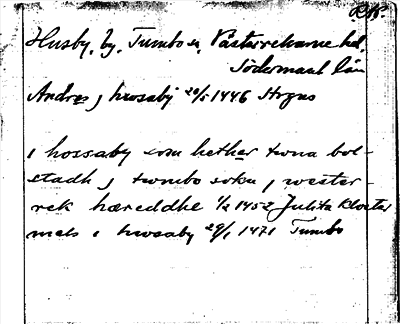 RAp.
Husby, by, Tumbo sn, Västerrekarne hd,
Södermanl. län
Andres j hwosabij 20/5 1446 Strgns
i hossaby som hether twna bol-
stadh j twmbo sokn j wester-
rek hæreddhe 1/2 1452 Julita kloster
mats i hwosaby 29/1 1471 Tumbo